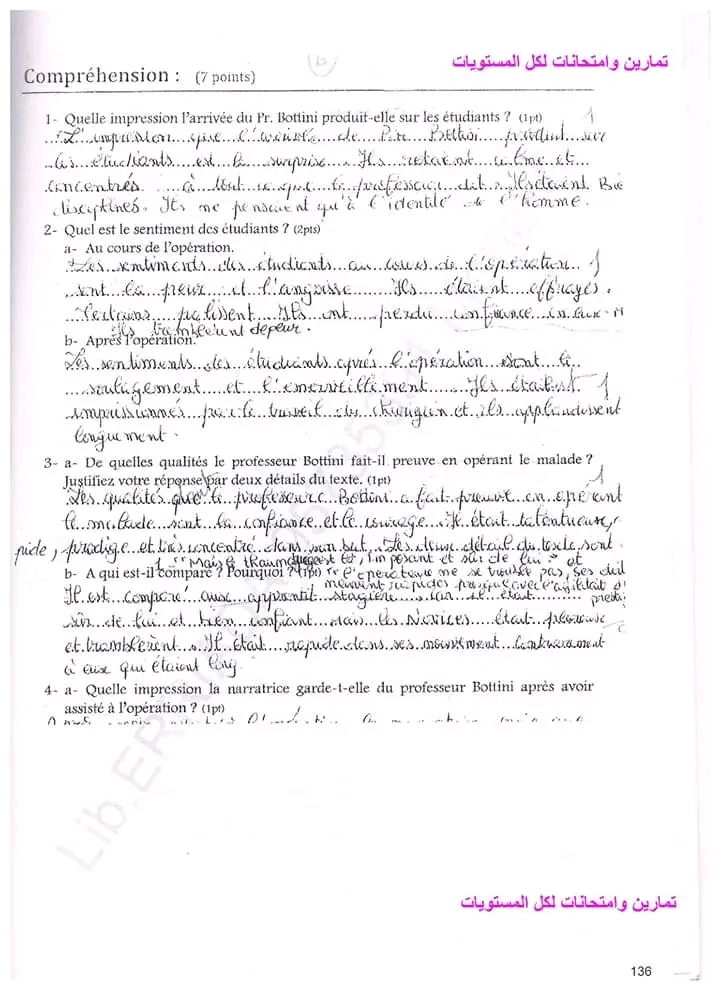 تمارين وامتحانات لكل المستويات
Compréhension : (7 points)
1- Quelle impression l'arrivée du Pr. Bottini produit-elle sur les étudiants ? (1pt) 1
L'impression que l'arrivée de Pr. Bottini produit sur
les étudiants est la surprise. Ils restaient calme et
concentrés à tout ce que le professeur dit. Ils étaient
disciplinés. Ils ne pensaient qu'à l'identité de l'homme.
2- Quel est le sentiment des étudiants ? (2pts)
a- Au cours de l'opération.
Les sentiments des étudiants au cours de l'opération 1
sont la peur et l'angoisse. Ils étaient effrayés.
Certains palissent. Ils ont perdu confiance en eux-M
Ils tremblèrent de peur.
b- Après l'opération.
Les sentiments des étudiants après l'opération sont le
soulagement et l'emerveillement. Ils étaient 1
impressionnés par le travail du chirurgien et ils applaudissent
longuement.
3- a- De quelles qualités le professeur Bottini fait-il preuve en opérant le malade ?
Justifiez votre réponse par deux détails du texte. (1pt) 1
Les qualités que le professeur Bottini a fait preuve en opérant
le malade sont la confiance et le courage. Il était talentueuse,
pide, prodige et très concentré dans son but. Les deux détail du texte sont
"Mais le est là, imposant et sûr de lui" et
b- A qui est-il comparé ? Pourquoi ? (1pt) "l'opérateur ne se trouble pas, ses
mouvement rapides avec l'agilité d'
Il est comparé aux apprentit stagière car il était
sûr de lui et bien confiant mais les Novices était
et tremblèrent. Il était rapide dans ses mouvement contrairement
à eux qui étaient long.
4- a- Quelle impression la narratrice garde-t-elle du professeur Bottini après avoir
assisté à l'opération ? (1pt)
تمارين وامتحانات لكل المستويات
136